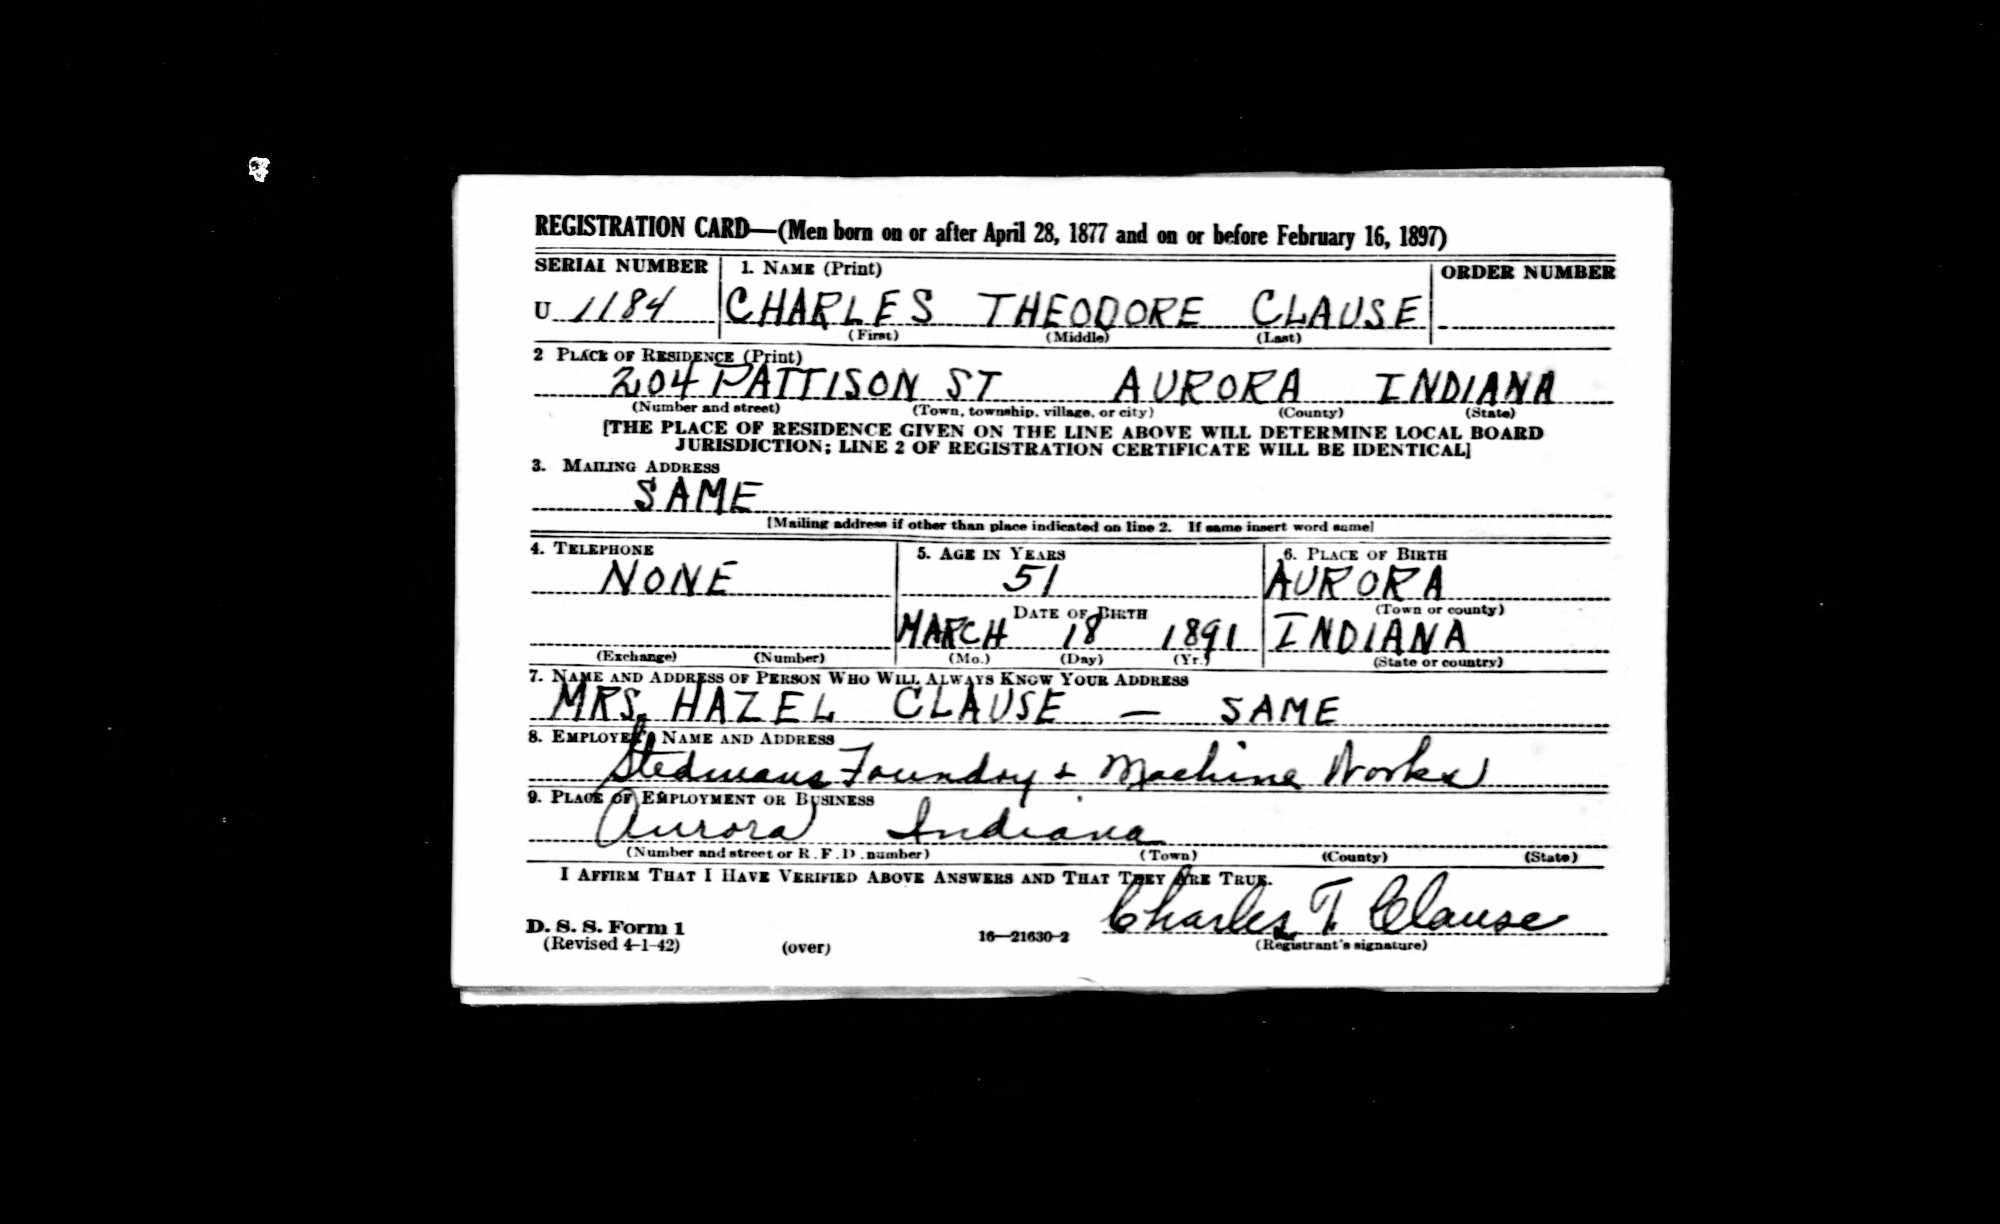 REGISTRATION CARD—(Men born on or after April 28, 1877 and on or before February 16, 1897)
SERIAL NUMBER 1. NAME (Print) ORDER NUMBER
U 1184 CHARLES THEODORE CLAUSE
(First) (Middle) (Last)
2 PLACE OF RESIDENCE (Print)
204 PATTISON ST AURORA INDIANA
(Number and street) (Town, township, village, or city) (County) (State)
[THE PLACE OF RESIDENCE GIVEN ON THE LINE ABOVE WILL DETERMINE LOCAL BOARD
JURISDICTION; LINE 2 OF REGISTRATION CERTIFICATE WILL BE IDENTICAL]
3. MAILING ADDRESS
SAME
[Mailing address if other than place indicated on line 2. If same insert word same]
4. TELEPHONE 5. AGE IN YEARS 6. PLACE OF BIRTH
NONE 51 AURORA
DATE OF BIRTH (Town or county)
MARCH 18 1891 INDIANA
(Exchange) (Number) (Mo.) (Day) (Yr.) (State or country)
7. NAME AND ADDRESS OF PERSON WHO WILL ALWAYS KNOW YOUR ADDRESS
MRS. HAZEL CLAUSE — SAME
8. EMPLOYER'S NAME AND ADDRESS
Stedmans Foundry & Machine Works
9. PLACE OF EMPLOYMENT OR BUSINESS
Aurora Indiana
(Number and street or R. F. D. number) (Town) (County) (State)
I AFFIRM THAT I HAVE VERIFIED ABOVE ANSWERS AND THAT THEY ARE TRUE.
Charles T. Clause
D. S. S. Form 1
(Revised 4-1-42) (over) 16—21630-2 (Registrant's signature)